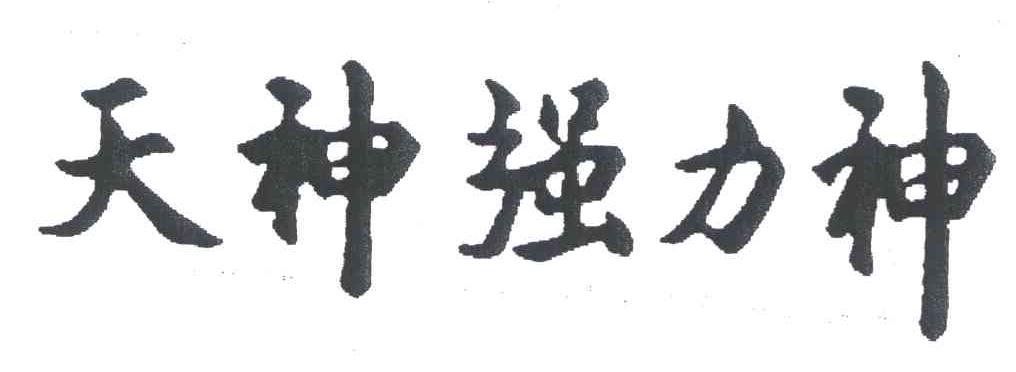 天神强力神